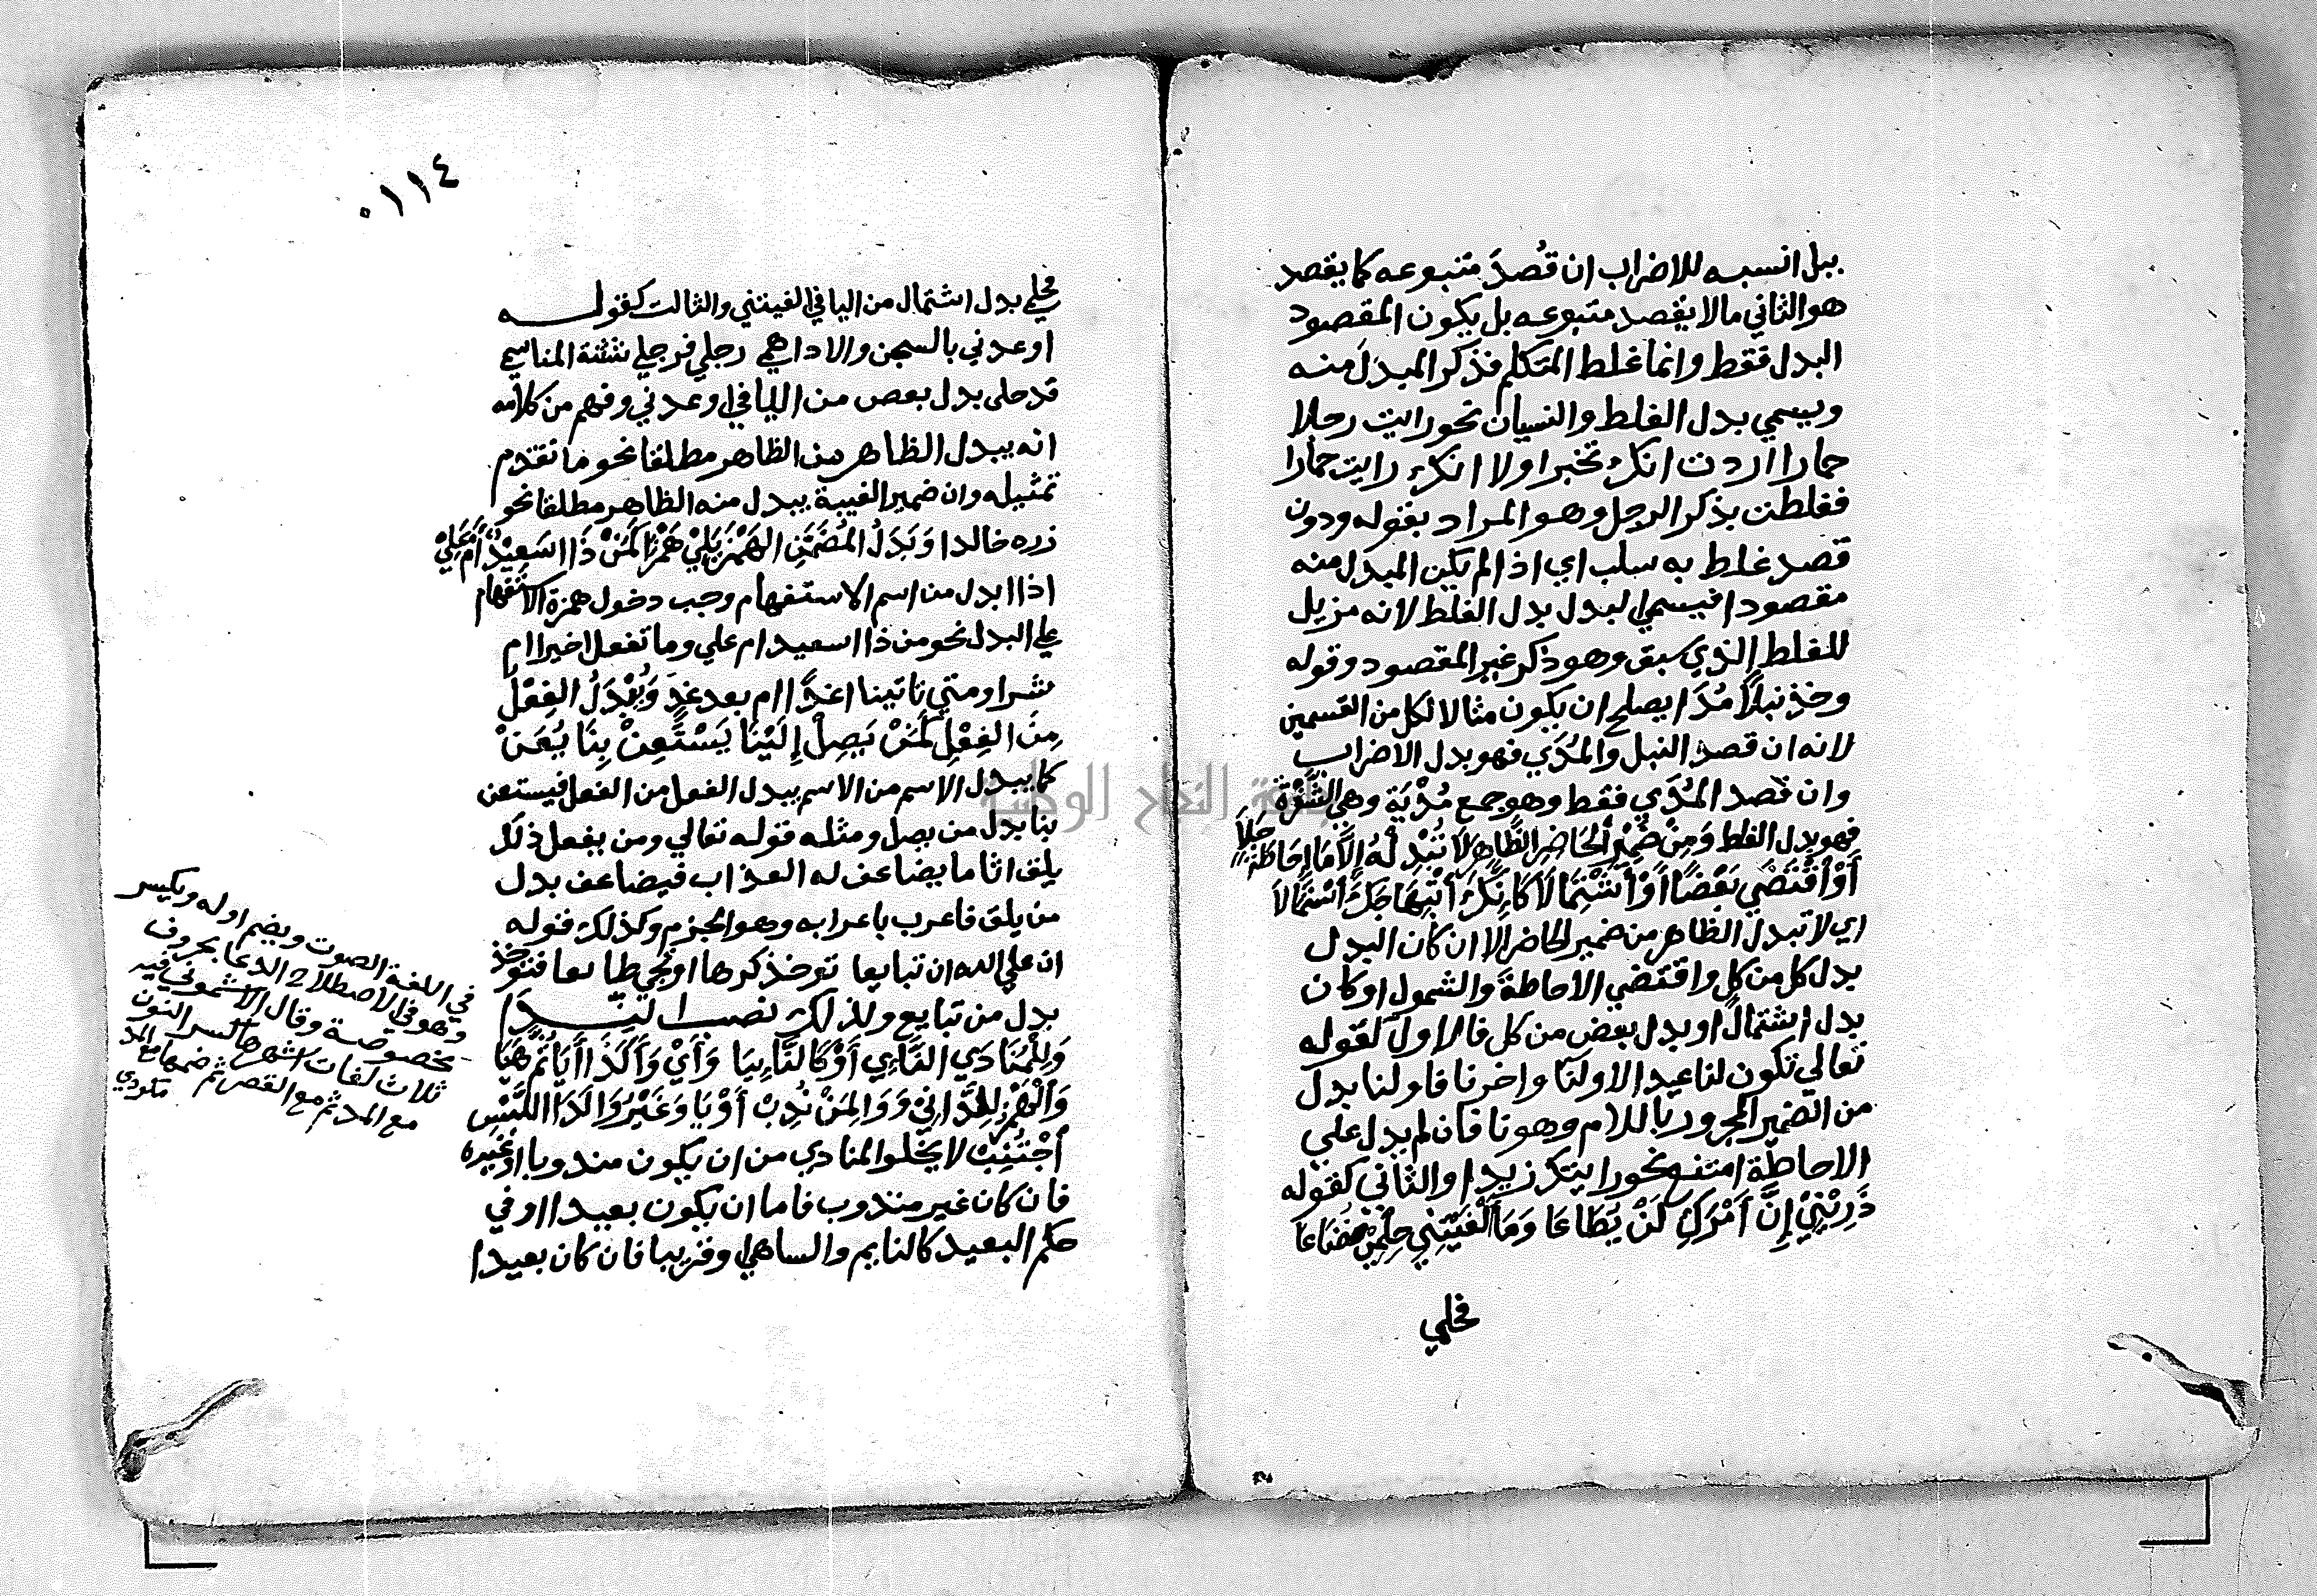 ببل انسبه للاضراب ان قُصدَ متبوعه كما يقصد
هو الثاني مالا يقصد متبوعه بل يكون المقصود
البدل فقط وانما غلط المتكلم فذكر المبدل منه
ويسمي بدل الغلط والنسيان نحو رايت رجلا
حمارا اردت انك تخبر اولا انك رايت حمارا
فغلطت بذكر الرجل وهو المراد بقوله ودون
قصد غلط به سلب اي اذا لم يكن المبدل منه
مقصودا فيسمي البدل بدل الغلط لانه مزيل
للغلط الذي سبق وهو ذكر غير المقصود وقوله
وخذ نبلاً مُدَا يصلح ان يكون مثالا لكل من القسمين
لانه ان قصد النبل والمُدَي فهو بدل الاضراب
وان قصد المُدَي فقط وهو جمع مُدْيَة وهي الشَّفْرَة
فهو بدل الغلط وَمِنْ ضَمِيْرِ الْحَاضِرِ الظَّاهِرَ لَا تُبْدِلْهُ اِلَّا مَا اِحَاطَةً جَلَا
أَوْ أَقْتَضَي بَعْضًا أَوْ أَشْتِمَالَا كَاَنَّكَ أَبْتِهَاجَكَ أَسْتَمَالَا
اي لا تبدل الظاهر من ضمير الحاضر الا ان كان البدل
بدل كل من كل واقتضي الاحاطة والشمول او كان
بدل اشتمال او بدل بعض من كل فالاول كقوله
تعالي تكون لنا عيدا لاولنا واخرنا فاولنا بدل
من الضمير المجرور باللام وهو نا فان لم يدل علي
الاحاطة امتنع نحو رايتك زيدا والثاني كقوله
ذَرِيْنِيْ إِنَّ أَمْرَكِ لَنْ يُطَاعَا وَمَا أَلْفَيْتِنِي حِلْمِيْ مُضَاعَا
فحلمي
٠١١٤
فحلمي بدل اشتمال من اليا في الفيتني والثالث كقوله
اوعدني بالسجن والاداهم رجلي فرجلي شثنة المناسم
قدحلى بدل بعض من اليا في اوعدني وفهم من كلامه
انه يبدل الظاهر من الظاهر مطلقا نحو ما تقدم
تمثيله وان ضمير الغيبة يبدل منه الظاهر مطلقا نحو
زره خالدا وَبَدَلُ الْمُضَمَّنِ الهَمْزَ يَلِيْ هَمْزًا كَمَنْ ذَا اسَعِيْدٌ أَمْ عَلِيْ
اذا ابدل من اسم الاستفهام وجب دخول همزة الاستفهام
علي البدل نحو من ذا اسعيد ام علي وما تفعل اخيرا ام
شرا ومتي تاتينا اغدًا ام بعد غدٍ وَيُبْدَلُ الفِعْلُ
مِنَ الفِعْلِ كَمَنْ يَصِلْ إِلَيْنَا يَسْتَعِنْ بِنَا يُعَنْ
كما يبدل الاسم من الاسم يبدل الفعل من الفعل فيستعن
بنا بدل من يصل ومثله قوله تعالي ومن يفعل ذلك
يلق اثاما يضاعف له العذاب فيضاعف بدل
من يلق فاعرب باعرابه وهو الجزم وكذلك قوله
ان علي الله ان تبايعا توخذ كرها او تجي طايعا فتوخذ
بدل من تبايع ولذلك نصب النِّدَا
وَلِلْمُنَادَي النَّاءِي أَوْ كَالنَّاءِ يَا وَأَيْ وَآ كَذَا أَيَا ثُمَّ هَيَا
وَالْهَمْزُ لِلدَّانِيْ وَوَا لِمَنْ نُدِبْ أَوْ يَا وَغَيْرُ وَا لَدَا اللَّبْسِ
أُجْتُنِبْ لا يخلو المنادي من ان يكون مندوبا او غيره
فان كان غير مندوب فاما ان يكون بعيدا او في
حكم البعيد كالنايم والساهي او قريبا فان كان بعيدا
في اللغة الصوت ويضم اوله ويكسر
وهو في الاصطلاح الدعا بحروف
مخصوصة وقال الاشموني فيه
ثلاث لغات اشهرها كسر النون
مع المد ثم مع القصر ثم ضمها مع المد
مكودي
جامعة النجاح الوطنية